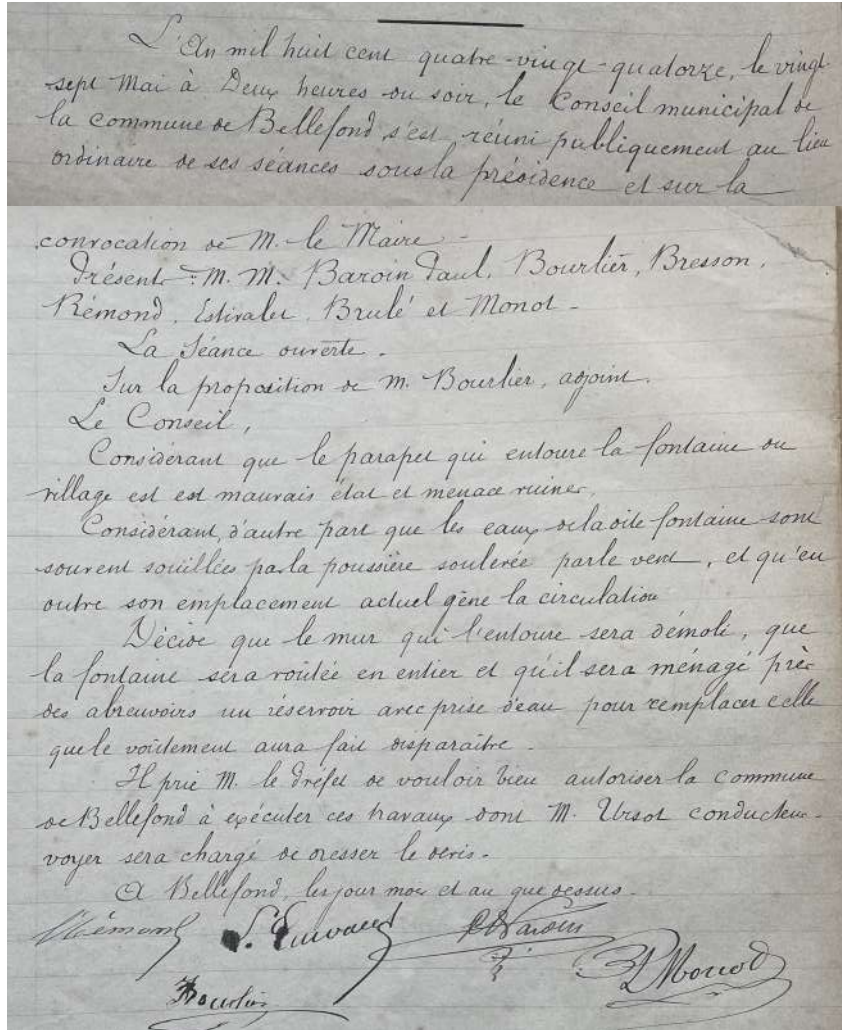 L'An mil huit cent quatre-vingt-quatorze, le vingt-
sept Mai à Deux heures du soir, le Conseil municipal de
la commune de Bellefond s'est réuni publiquement au lieu
ordinaire de ses séances sous la présidence et sur la
convocation de M. le Maire -
Présents : M. M. Baroin Paul, Bourlier, Bresson,
Rémond, Estivalet, Brulé et Monot -
La Séance ouverte -
Sur la proposition de M. Bourlier, adjoint.
Le Conseil,
Considérant que le parapet qui entoure la fontaine du
village est est mauvais état et menace ruines,
Considérant, d'autre part que les eaux de la dite fontaine sont
souvent souillées par la poussière soulevée par le vent, et qu'en
outre son emplacement actuel gêne la circulation
Décide que le mur qui l'entoure sera démoli, que
la fontaine sera voûtée en entier et qu'il sera ménagé près
des abreuvoirs un réservoir avec prise d'eau pour remplacer celle
que le voûtement aura fait disparaître -
Il prie M. le Préfet de vouloir bien autoriser la commune
de Bellefond à exécuter ces travaux dont M. Ursot conducteur-
voyer sera chargé de dresser le devis -
A Bellefond, les jour mois et an que dessus -
Rémond
Bourlier
Monot